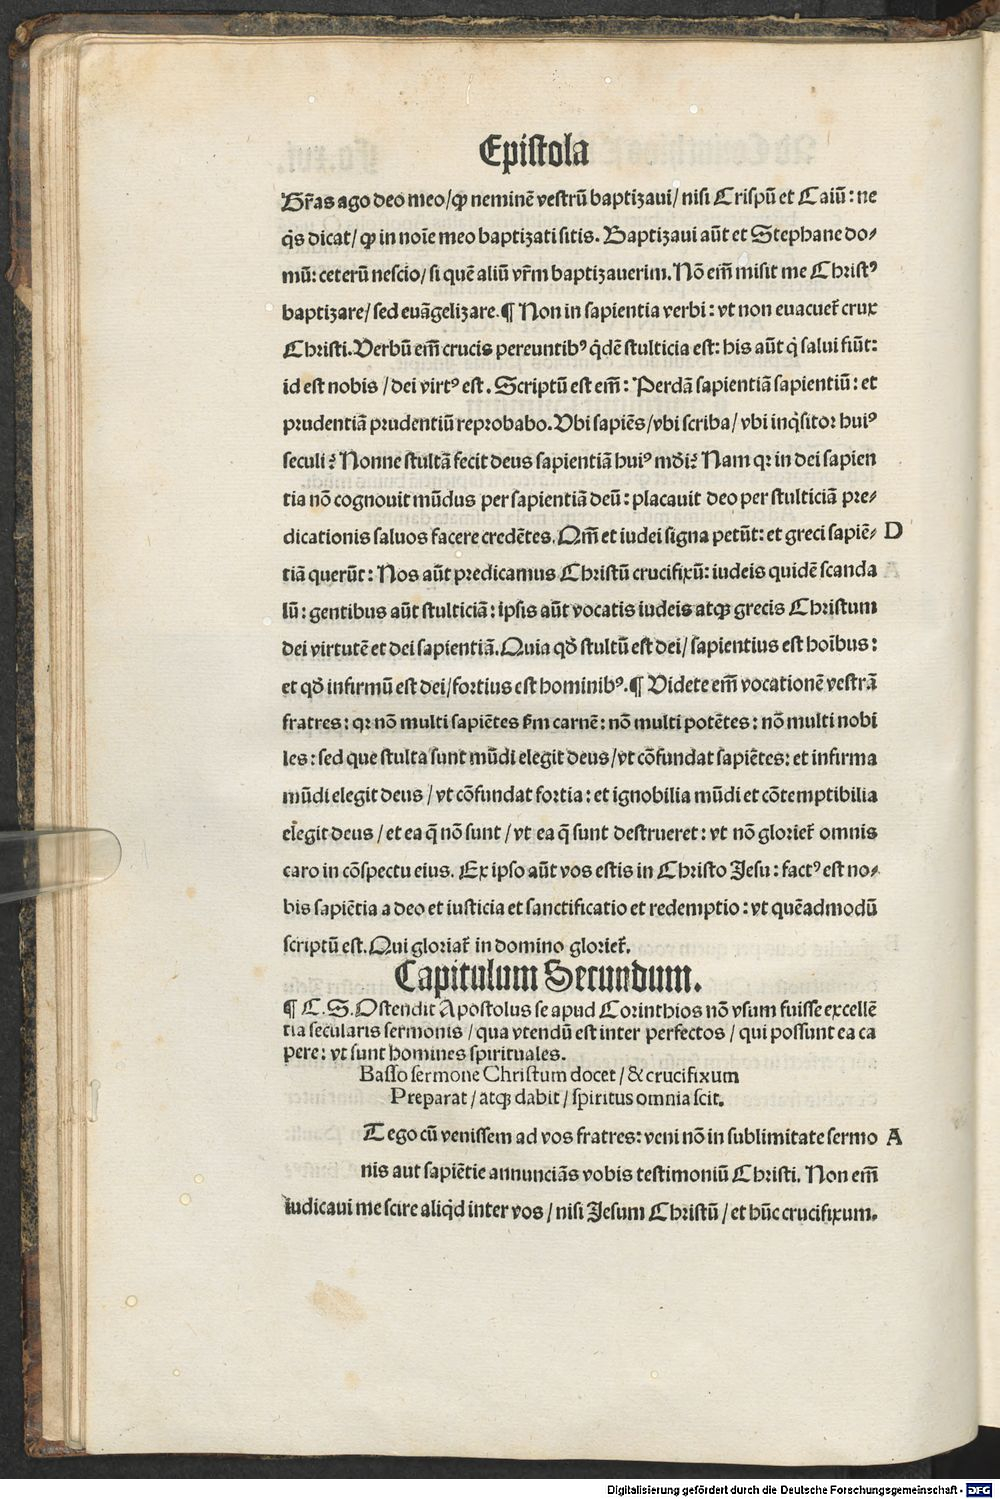 Epistola
Gr̃as ago deo meo/ ꝙ neminẽ vestrũ baptizaui/ nisi Crispũ et Caiũ: ne
q̃s dicat/ ꝙ in noĩe meo baptizati sitis. Baptizaui aũt et Stephane do⸗
mũ: ceterũ nescio/ si quẽ aliũ vr̃m baptizauerim. Nõ em̃ misit me Christꝰ
baptizare/ sed euãgelizare. ¶ Non in sapientia verbi: vt non euacuet̃ crux
Christi. Verbũ em̃ crucis pereuntibꝰ q̃dẽ stulticia est: his aũt q̃ salui fiũt:
id est nobis / dei virtꝰ est. Scriptũ est em̃: Perdã sapientiã sapientiũ: et
prudentiã prudentiũ reprobabo. Vbi sapiẽs/ vbi scriba/ vbi inq̃sitor huiꝰ
seculi? Nonne stultã fecit deus sapientiã huiꝰ mũdi? Nam qꝛ in dei sapien
tia nõ cognouit mũdus per sapientiã deũ: placauit deo per stulticiã pre⸗
dicationis saluos facere credẽtes. Qm̃ et iudei signa petũt: et greci sapiẽ⸗ D
tiã querũt: Nos aũt predicamus Christũ crucifixũ: iudeis quidẽ scanda
lũ: gentibus aũt stulticiã: ipsis aũt vocatis iudeis atqꝫ grecis Christum
dei virtutẽ et dei sapientiã. Quia qđ stultũ est dei/ sapientius est hoĩbus:
et qđ infirmũ est dei/ fortius est hominibꝰ. ¶ Videte em̃ vocationẽ vestrã
fratres: qꝛ nõ multi sapiẽtes fm̃ carnẽ: nõ multi potẽtes: nõ multi nobi
les: sed que stulta sunt mũdi elegit deus/ vt cõfundat sapiẽtes: et infirma
mũdi elegit deus / vt cõfundat fortia: et ignobilia mũdi et cõtemptibilia
elegit deus / et ea q̃ nõ sunt / vt ea q̃ sunt destrueret: vt nõ gloriet̃ omnis
caro in cõspectu eius. Ex ipso aũt vos estis in Christo Jesu: factꝰ est no⸗
bis sapiẽtia a deo et iusticia et sanctificatio et redemptio: vt quẽadmodũ
scriptũ est. Qui gloriat̃ in domino gloriet̃.
Capitulum Secundum.
¶ C. S. Ostendit Apostolus se apud Corinthios nõ vsum fuisse excellẽ
tia secularis sermonis / qua vtendũ est inter perfectos / qui possunt ea ca
pere: vt sunt homines spirituales.
Basso sermone Christum docet / & crucifixum
Preparat / atqꝫ dabit / spiritus omnia scit.
T ego cũ venissem ad vos fratres: veni nõ in sublimitate sermo A
nis aut sapiẽtie annunciãs vobis testimoniũ Christi. Non em̃
iudicaui me scire aliq̃d inter vos / nisi Jesum Christũ / et hũc crucifixum.
Digitalisierung gefördert durch die Deutsche Forschungsgemeinschaft - DFG